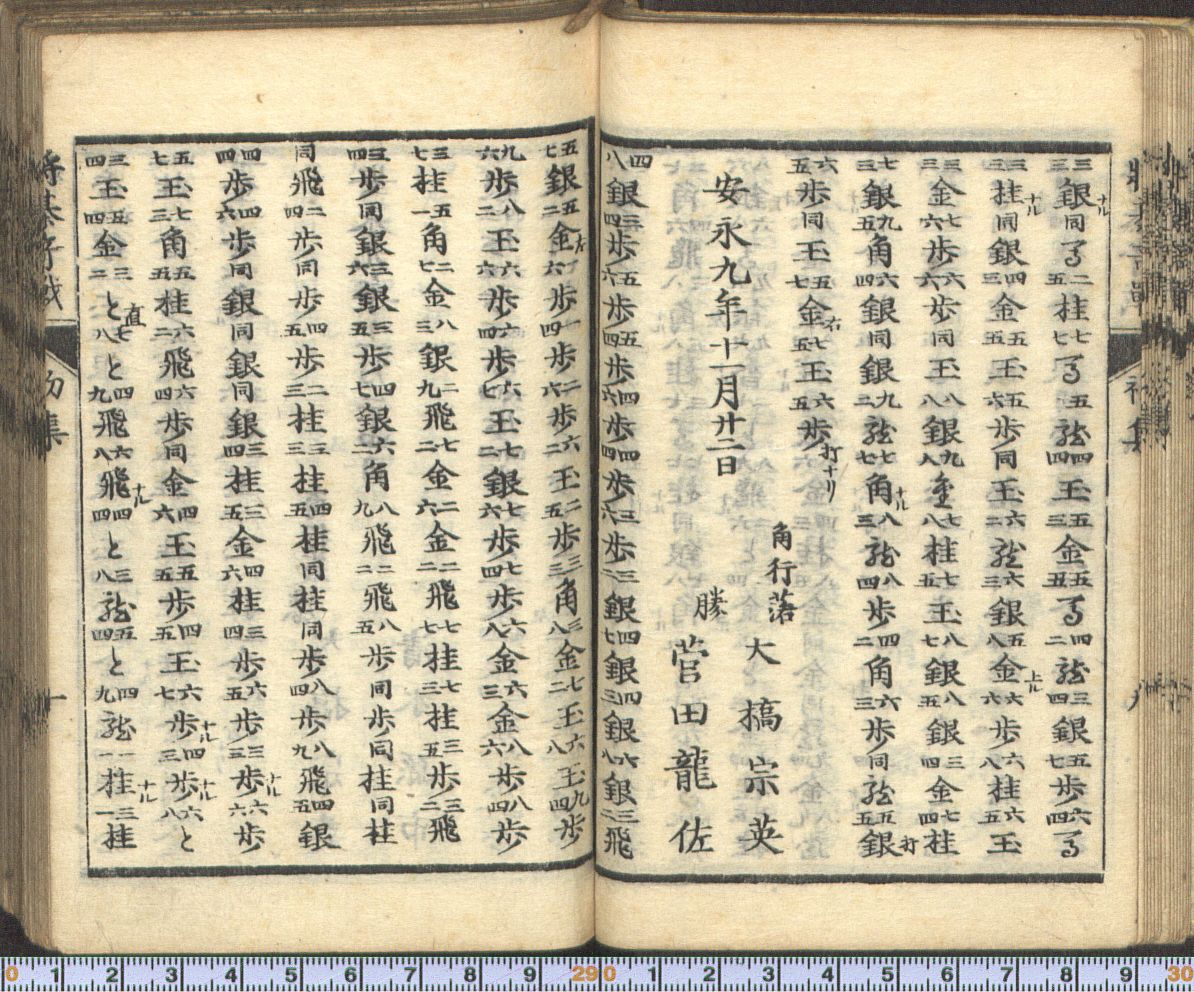 三三銀ナル同馬二五桂七七馬五四龍四四王五三金五五馬四二龍三四銀五七歩六四馬
三三桂ナル同銀四三金五五王五六歩同王六二龍六三銀五八金上ル六六歩六八桂六五王
三三金七六歩六六歩同王八八銀九八金七八桂七五王八七銀八五銀三四金七四桂打
七三銀九五角六四銀同銀九二龍七七角ナル八三龍八四歩四二角六三歩同龍五五銀
六五歩同王五七金右七五王六五歩打ナリ
安永九年十一月廿二日
角行落 大橋宗英
勝 菅田龍佐
四八銀三四歩五六歩五四歩四六歩四四歩三六歩三二銀四七銀四三銀六八銀三二飛
五七銀五二金左一六歩一四歩二六歩六二玉二五歩三三角三八金七二王六八王九四歩
九六歩八二玉六六歩六四歩六七王七二銀七六歩七四歩六八金六三金八六歩八四歩
三七桂五一角二七金八三銀二九飛七二金二六金二二飛七七桂七三桂三五歩三二飛
三四歩同銀三六銀三五歩四七銀六二角八九飛二二飛八五歩同歩同桂同桂
同飛二四歩同歩四五歩二三桂三三桂四五桂同桂同歩八四歩八九飛四五銀
四四歩四六歩同銀同銀三四桂三五金四六桂三四歩六五歩三三歩ナル六六歩
五七王七三角五五桂六二飛六四歩同金四六王五五歩四五王六七歩ナル四三歩ナル六八と
三四玉五四金三二と直七八と四九飛六八飛ナル四四と三八龍五四と四九龍一一桂ナル三一桂
初集